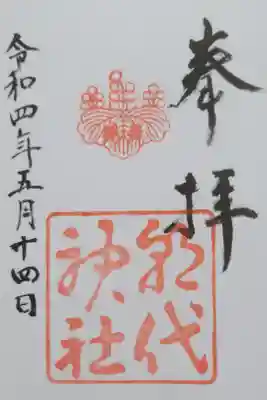 奉拝
朝代
神社
令和四年五月十四日